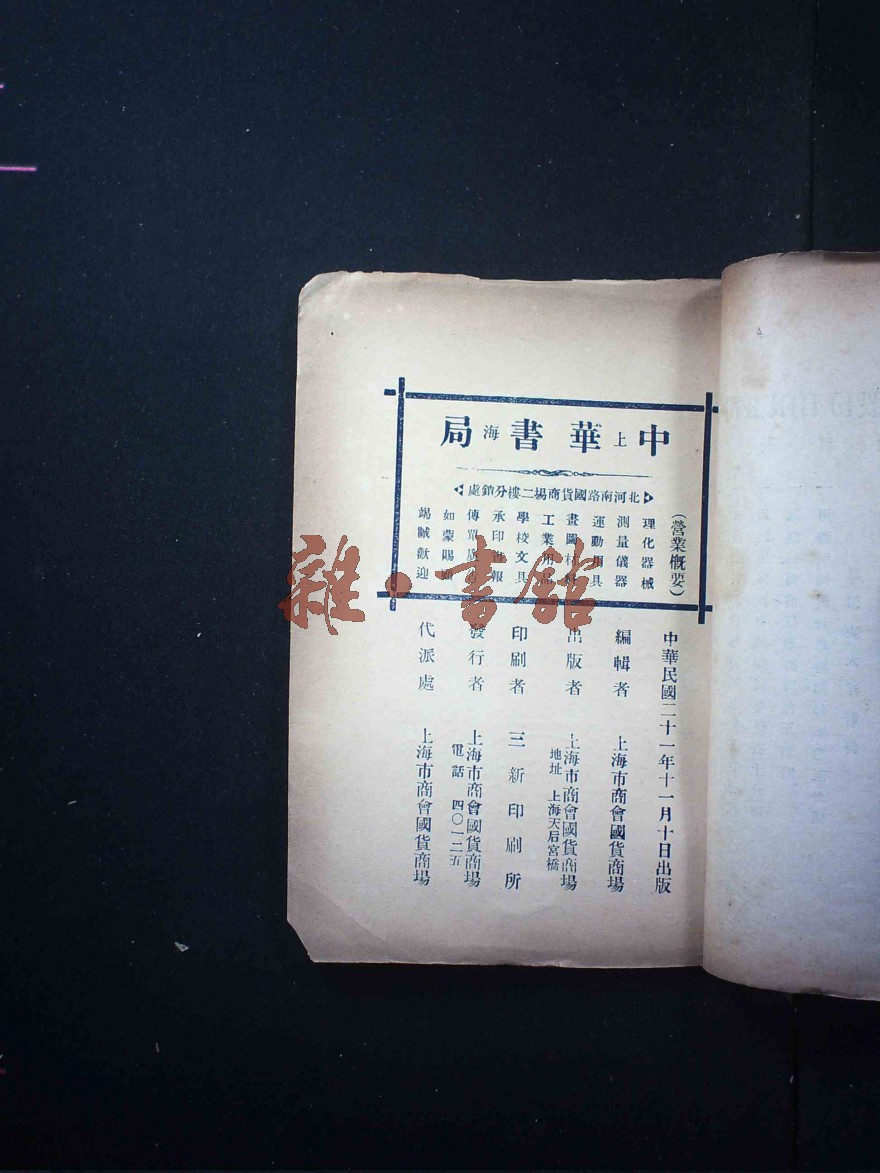 中華書局
上海
北河南路國貨商場二樓分銷處
（營業概要）
理化器械
測量儀器
運動用具
畫圖材料
工業用品
學校文具
承印書報
傳單
如蒙賜
竭誠歡迎
中華民國二十一年十一月十日出版
編輯者 上海市商會國貨商場
出版者 上海市商會國貨商場
地址 上海天后宮橋
印刷者 三新印刷所
發行者 上海市商會國貨商場
電話 四〇一二五
代派處 上海市商會國貨商場
雜·書館